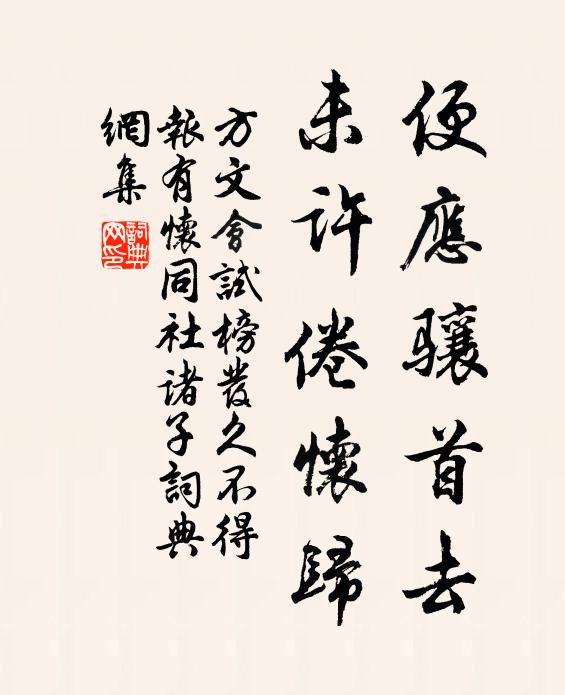 便應骧首去
未许倦懷歸
方文會試榜發久不得
報有懷同社诸子詞典
網集
詞典
网印